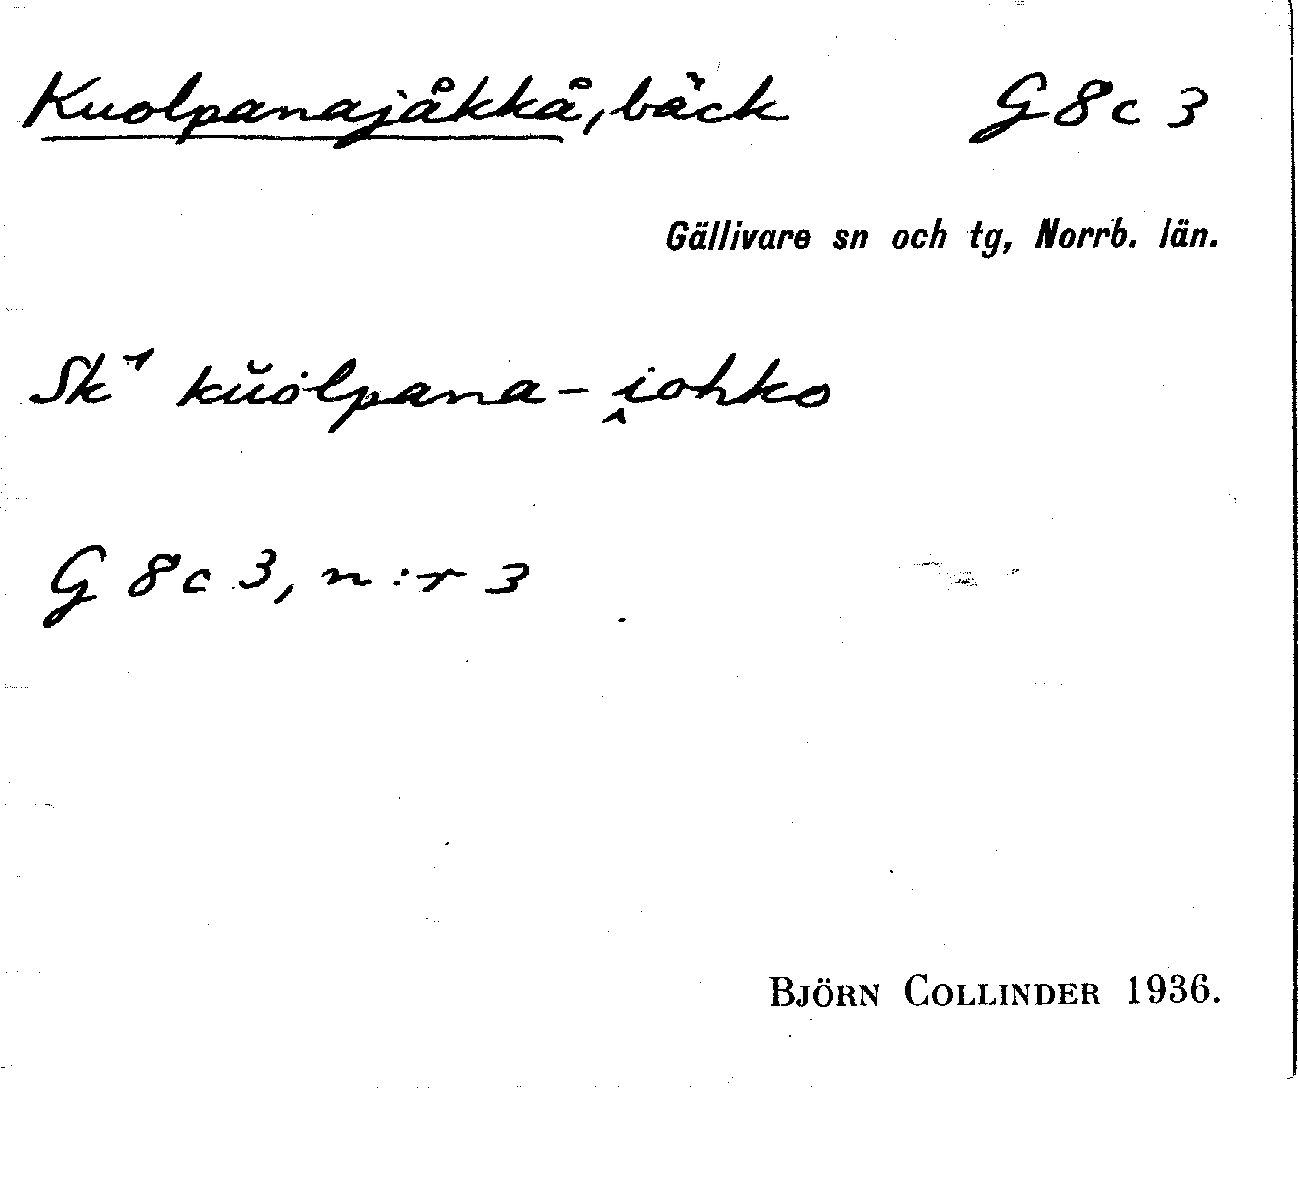 Kuolpanajåkkå, bäck G 8 c 3
Gällivare sn och tg, Norrb. län.
Sk¹ kŭȯlpana-i̭ohko
G 8 c 3, n:r 3
BJÖRN COLLINDER 1936.